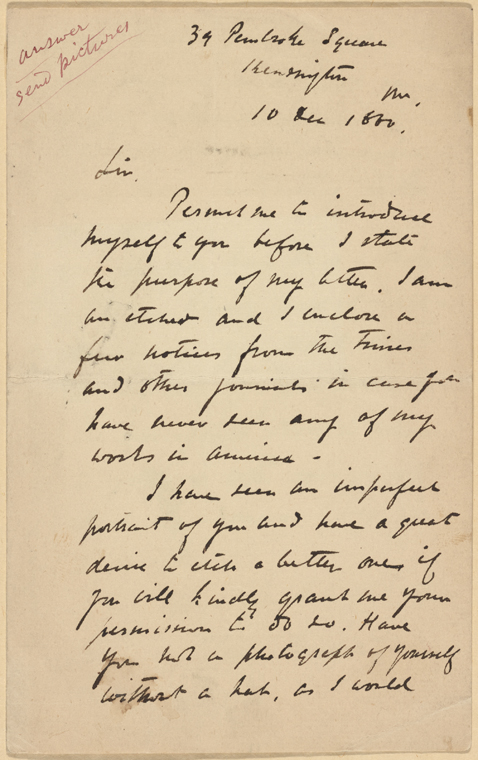 answer
send pictures
39 Pembroke Square
Kensington
10 Dec 1880.
Sir,
Permit me to introduce
myself to you before I state
the purpose of my letter. I am
an etcher and I enclose a
few notices from the Times
and other journals in case you
have never seen any of my
works in America -
I have seen an imperfect
portrait of you and have a great
desire to etch a better one, if
you will kindly grant me your
permission to do so. Have
you not a photograph of yourself
without a hat, as I would